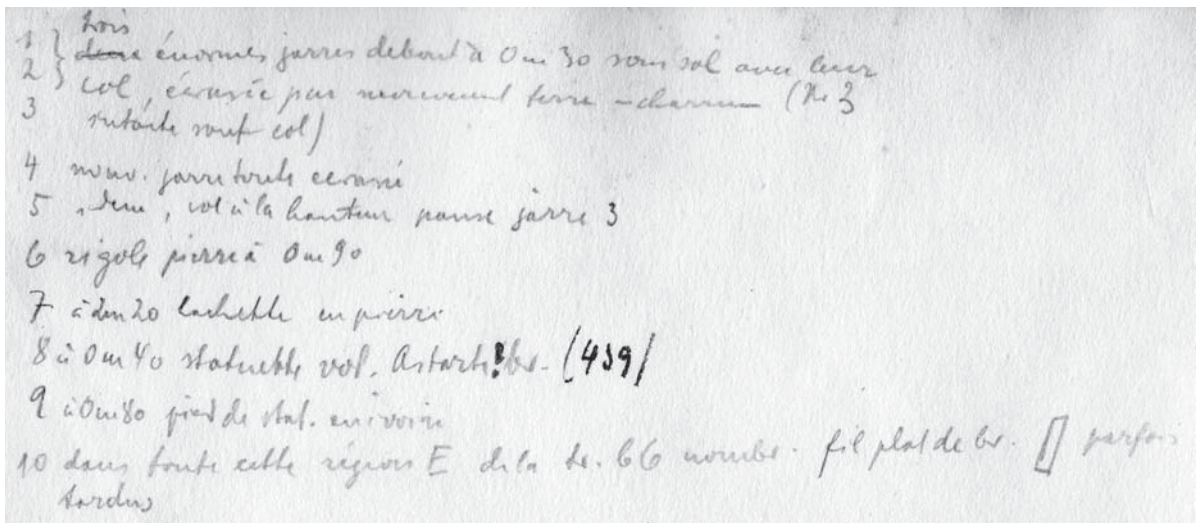 trois
1 } deux énormes jarres debout à 0m30 sous sol avec leur
2 } col, écrasée par mouvement terre – charrue – (No 3
3 intacte sauf col)
4 nouv. jarre toute écrasée
5 idem, col à la hauteur panse jarre 3
6 rigole pierre à 0m90
7 à 2m20 cachette en pierre
8 à 0m40 statuette vot. Astarté! br. (439)
9 à 0m80 pied de stat. en ivoire
10 dans toute cette région E de la tr. 66 nombr. fil plat de br. parfois
tordus